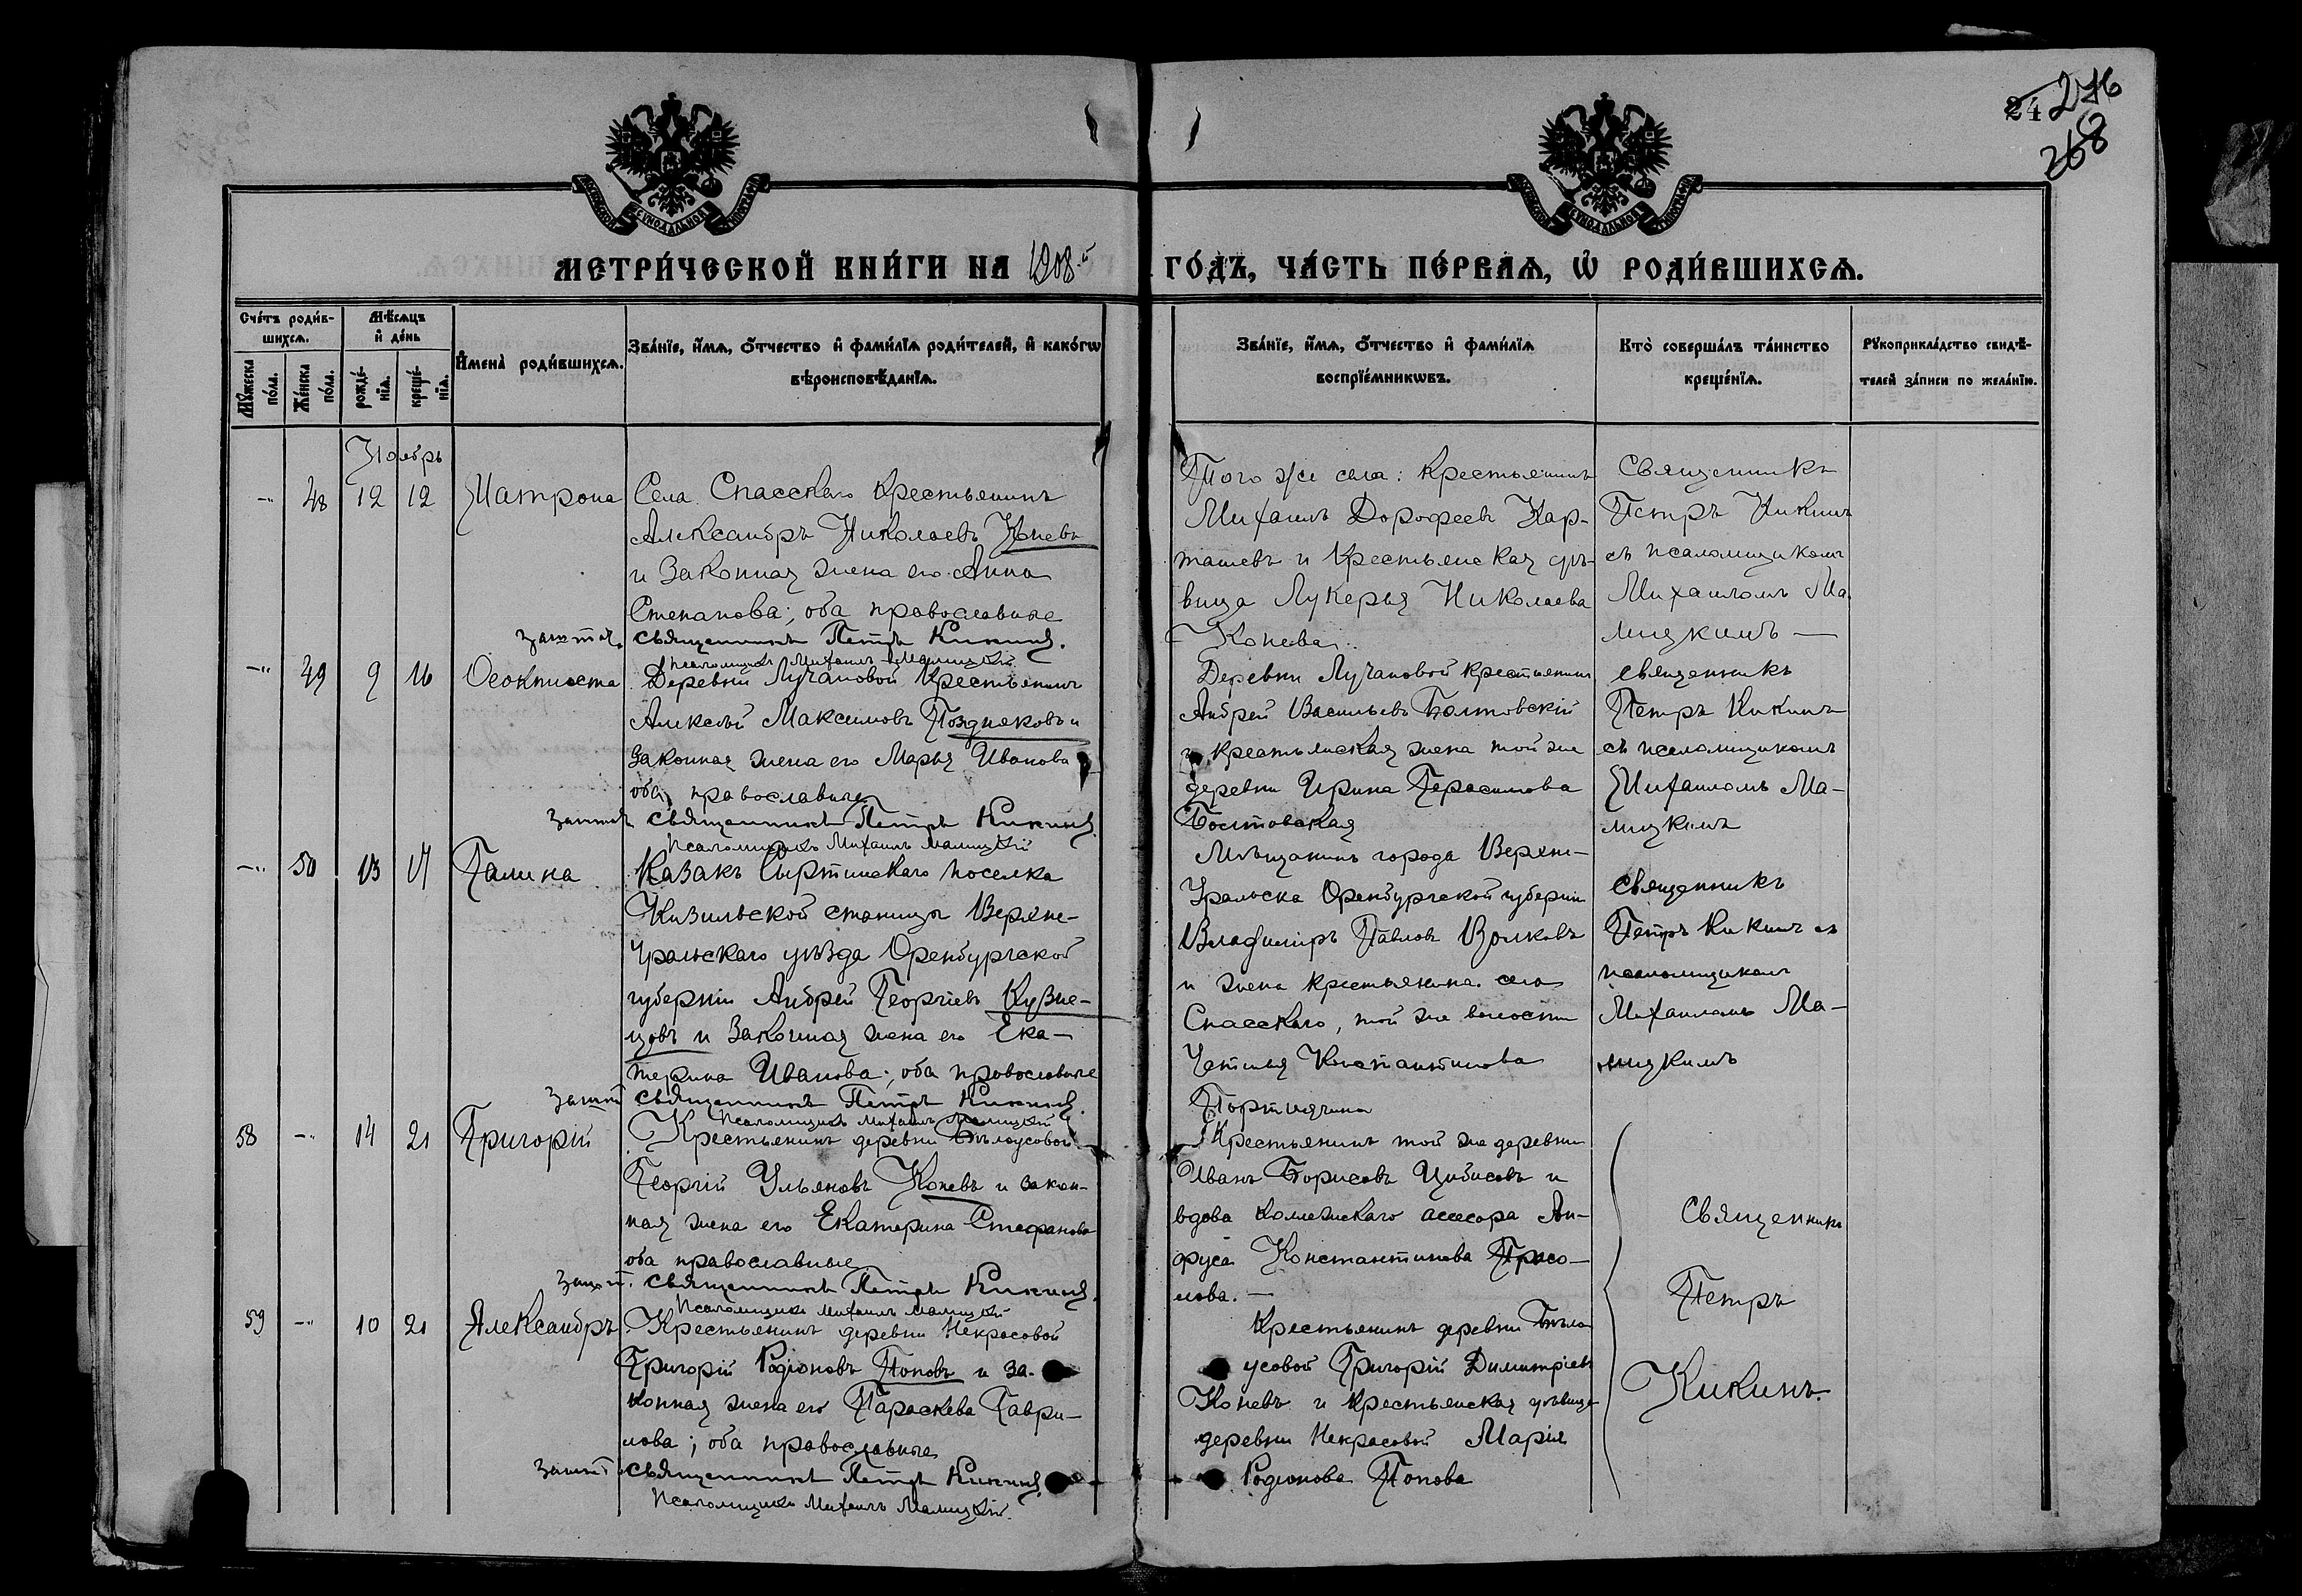 24 276
268
МЕТРИ́ЧЕСКОЙ КНИ́ГИ НА 1908.й ГО́ДЪ, ЧА́СТЬ ПЕ́РВАѦ, Ѽ РОДИ́ВШИХСѦ.
Сче́тъ роди́в-
шихсѧ.
Мѣ́сѧцъ
и҆ де́нь
Мꙋ́жеска
по́ла.
Же́нска
по́ла.
рожде́-
нїѧ.
креще́-
нїѧ.
И҆мена̀ роди́вшихсѧ.
Зва́нїе, и҆́мѧ, ѻ҆́тчество и҆ фами́лїѧ роди́телей, и҆ како́гѡ
вѣроисповѣ́данїѧ.
Зва́нїе, и҆́мѧ, ѻ҆́тчество и҆ фами́лїѧ
воспрїе́мникѡвъ.
Кто̀ соверша́лъ та́инство
креще́нїѧ.
Рꙋкоприкла́дство свидѣ́-
телей за́писи по жела́нїю.
Ноябрь
-" 48 12 12 Матрона
Села Спасскаго Крестьянинъ
Александръ Николаевъ Коневъ
и законная жена его Анна
Степанова; оба православные
священникъ Петръ Кикинъ.
Псаломщикъ Михаилъ Малицкій
Того же села: Крестьянинъ
Михаилъ Дорофеевъ Кар-
ташевъ и Крестьянская дѣ-
вица Лукерья Николаева
Конева.
Священникъ
Петръ Кикинъ
съ псаломщикомъ
Михаиломъ Ма-
лицкимъ —
-" 49 9 16 Ѳеоктиста
Деревни Лучановой Крестьянинъ
Алексѣй Максимовъ Поздняковъ и
законная жена его Марья Иванова
оба православные
священникъ Петръ Кикинъ.
Псаломщикъ Михаилъ Малицкій
Деревни Лучановой крестьянинъ
Андрей Васильевъ Болтовскій
и крестьянская жена той же
деревни Ирина Герасимова
Болтовская
священникъ
Петръ Кикинъ
съ псаломщикомъ
Михаиломъ Ма-
лицкимъ
-" 50 13 17 Галина
Казакъ Сыртинскаго поселка
Кизильской станицы Верхне-
уральскаго уѣзда Оренбургской
губерніи Андрей Георгіевъ Кузне-
цовъ и законная жена его Ека-
терина Иванова; оба православные
священникъ Петръ Кикинъ.
Псаломщикъ Михаилъ Малицкій
Мѣщанинъ города Верхне-
Уральска Оренбургской губерніи
Владиміръ Павловъ Волковъ
и жена крестьянина села
Спасскаго, той же волости
Константинова
священникъ
Петръ Кикинъ съ
псаломщикомъ
Михаиломъ Ма-
лицкимъ
58 -" 14 21 Григорій
Крестьянинъ деревни Бѣлоусовой
Георгій Ульяновъ Коневъ и закон-
ная жена его Екатерина Стефанова
оба православные
священникъ Петръ Кикинъ.
Псаломщикъ Михаилъ Малицкій
Крестьянинъ той же деревни
Иванъ Борисовъ и
вдова Коллежскаго ассесора Ан-
фуса Константинова
лова. —
Священникъ
Петръ
Кикинъ.
59 -" 10 21 Александръ
Крестьянинъ деревни Некрасовой
Григорій Родіоновъ Поповъ и за-
конная жена его Параскева Гаври-
лова; оба православные
священникъ Петръ Кикинъ.
Псаломщикъ Михаилъ Малицкій.
Крестьянинъ деревни Бѣло-
усовой Григорій Димитріевъ
Коневъ и крестьянская дѣвица
деревни Некрасовой Марія
Родіонова Попова